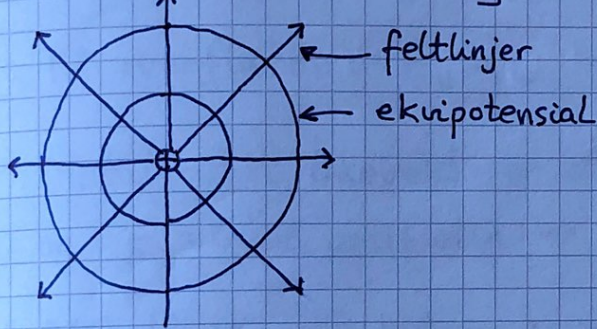 feltlinjer
ekvipotensial